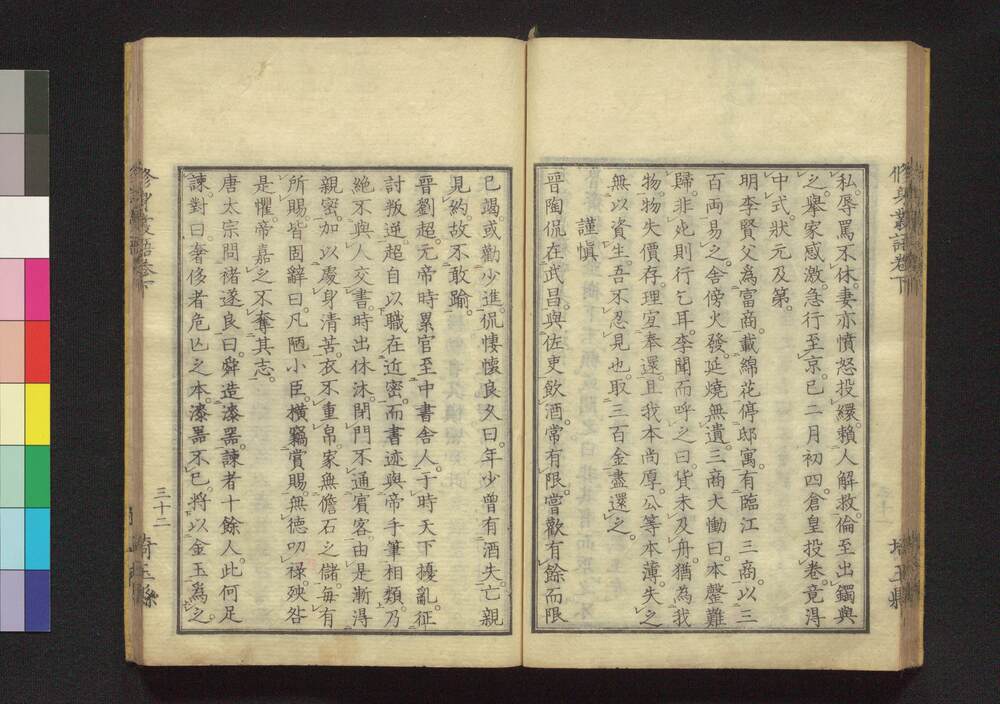 私辱罵不休。妻亦憤怒投繯。賴人解救。倫至出鐲與
之。舉家感激。急行至京。已二月初四。倉皇投卷。竟得
中式。狀元及第。
明李賢父為富商。載綿花停邸寓。有臨江三商。以三
百両易之。舍傍火發。延燒無遺。三商大慟曰。本罄難
歸。非此則行乞耳。李聞而呼之曰。貨未及舟。猶為我
物。物失價存。理宜奉還。且我本尚厚。公等本薄。失之
無以資生。吾不忍見也。取三百金盡還之。
謹愼
晉陶侃在武昌。與佐吏飲酒。常有限。嘗歡有餘而限
已竭。或勸少進。侃悽懷良久曰。年少曾有酒失。亡親
見約。故不敢踰。
晉劉超。元帝時累官至中書舍人。于時天下擾亂。征
討叛逆。超自以職在近密。而書迹與帝手筆相類。乃
絶不與人交書。時出休沐。閉門不通賓客。由是漸得
親密。加以處身清苦。衣不重帛。家無儋石之儲。毎有
所賜。皆固辭曰。凡陋小臣。横竊賞賜。無徳叨禄。殃咎
是懼。帝嘉之不奪其志。
唐太宗問褚遂良曰。舜造漆器。諫者十餘人。此何足
諫。對曰。奢侈者危亡之本。漆器不已。將以金玉爲之
三十二
埼玉縣